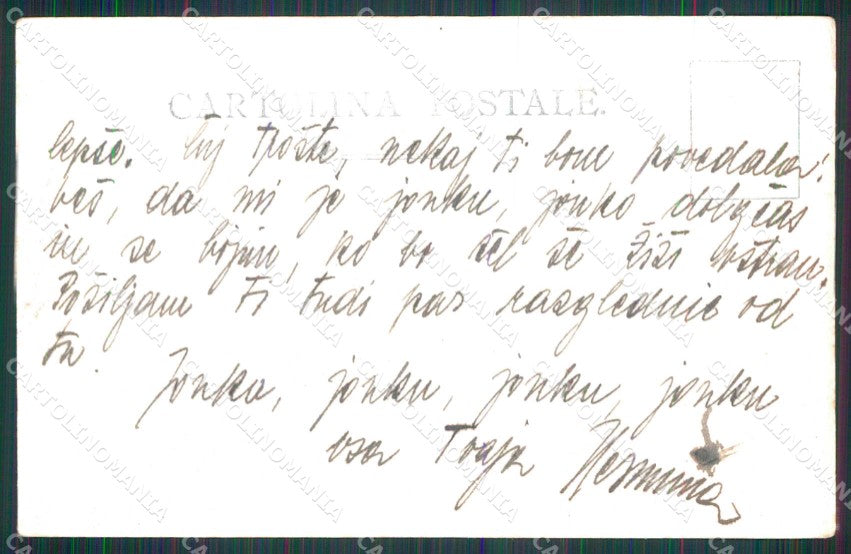 CARTOLINA POSTALE.
lepše. Čuj Trošte, nekaj ti bom povedala!
Veš, da mi je jonku, jonko dolgčas
in se bojim, ko bo šel še Žiži vstran.
Pošiljam Ti tudi par razglednic od
tu.
Jonku, jonku, jonku, jonku
vsa Tvoja
CARTOLINOMANIA